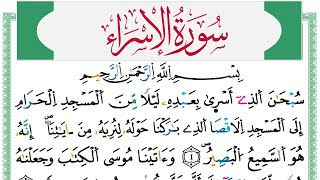 سُورَةُ الْإِسْرَاء
بِسْمِ اللَّهِ الرَّحْمَٰنِ الرَّحِيمِ
سُبْحَانَ الَذِےٓ أَسْر۪ىٰ بِعَبْدِهِۦ لَيْلاٗ مِّنَ اَ۬لْمَسْجِدِ اِ۬لْحَرَامِ
إِلَى اَ۬لْمَسْجِدِ اِ۬لَاقْصَا اَ۬لَذِے بَٰرَكْنَا حَوْلَهُۥ لِنُرِيَهُۥ مِنَ اٰيَٰتِنَآۖ إِنَّهُۥ
هُوَ اَ۬لسَّمِيعُ اُ۬لْبَصِيرُۖ ١ وَءَاتَيْنَا مُوسَى اَ۬لْكِتَٰبَ وَجَعَلْنَٰهُ